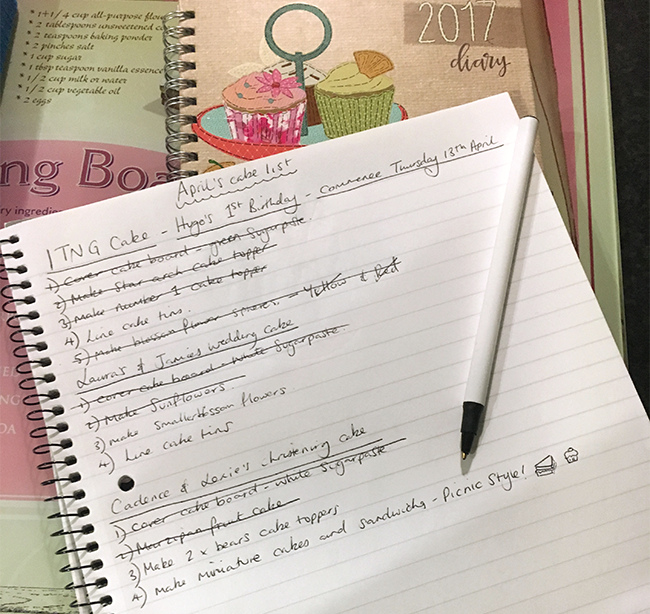 * 1+1/4 cup all-purpose flou
* 2 tablespoons unsweetened co
* 2 teaspoons baking powder
* 2 pinches salt
* 1 cup sugar
* 1 tbsp teaspoon vanilla essence
* 1/2 cup milk or water
* 1/2 cup vegetable oil
* 2 eggs
2017
diary
ng Boa
ry ingredien
April's cake list
ITNG Cake - Hugo's 1st Birthday - commence Thursday 13th April
1) Cover cake board - green sugarpaste.
2) Make star arch cake topper
3) Make number 1 cake topper
4) Line cake tins.
5) Make blossom flower - Yellow & Red
Laura's & Jamie's wedding cake
1) Cover cake board - white sugarpaste.
2) Make sunflowers.
3) make smaller blossom flowers
4) Line cake tins
Cadence & Lexie's christening cake
1) cover cake board - white sugarpaste
2) Marzipan fruit cake
3) Make 2 x bears cake toppers
4) Make miniature cakes and sandwichs - Picnic Style!
NG
DA